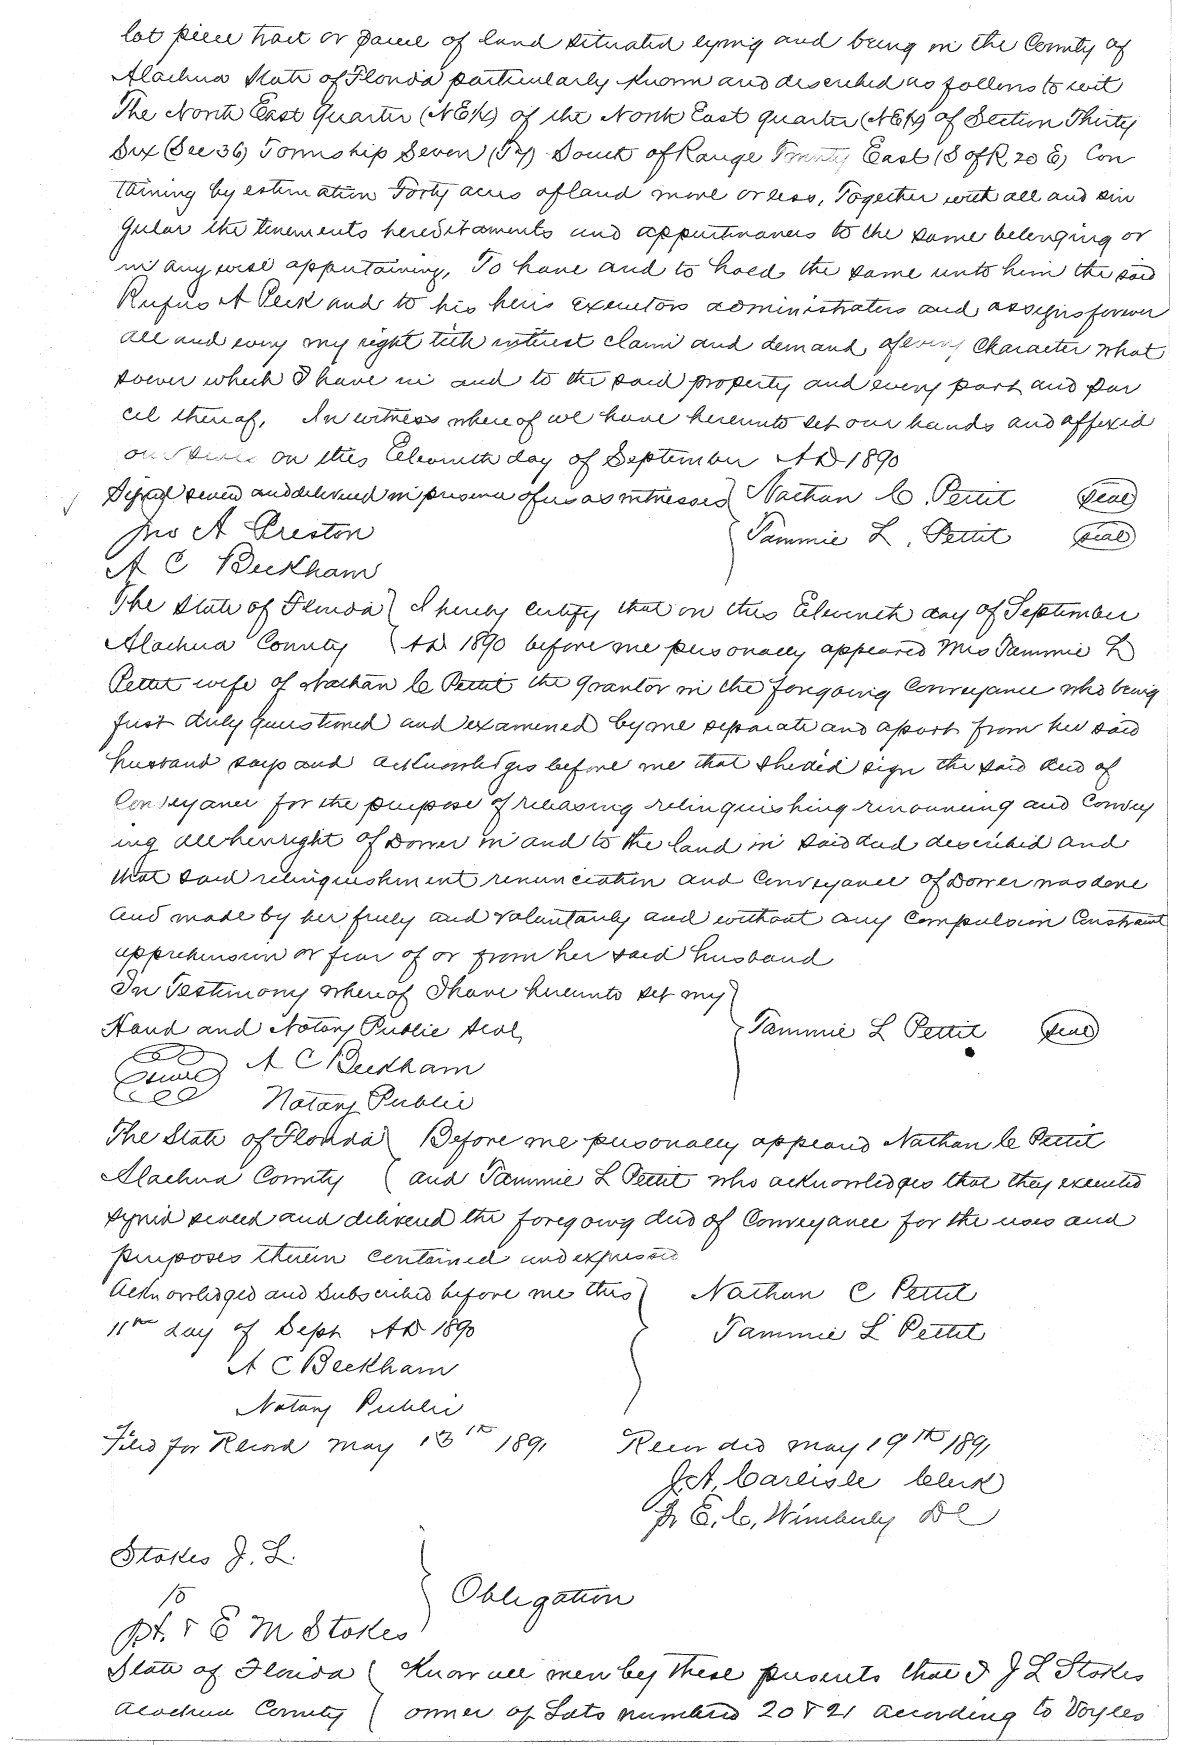 lot piece tract or parcel of land situated lying and being in the County of
Alachua State of Florida particularly known and described as follows to wit
The North East Quarter (NE¼) of the North East quarter (NE¼) of Section Thirty
Six (Sec 36) Township Seven (T7) South of Range Twenty East (S of R 20 E) Con
taining by estimation Forty acres of land more or less, Together with all and sin
gular the tenements hereditaments and appurtinances to the same belonging or
in any wise appertaining, To have and to hold the same unto him the said
Rufus A Peck and to his heirs executors administrators and assigns forever
all and every my right title interest claim and demand of every Character what
soever which I have in and to the said property and every part and par
cel thereof, In witness where of we have hereunto set our hands and affixed
our seals on this Eleventh day of September AD 1890
Signed sealed and delivered in presence of us as witnesses } Nathan C. Pettit (seal)
Jno A Preston } Tammie L. Pettit (seal)
A C Beckham
The State of Florida } I hereby certify that on this Eleventh day of September
Alachua County { AD 1890 before me personally appeared Mrs Tammie L
Pettit wife of Nathan C Pettit the grantor in the foregoing Conveyance who being
first duly questioned and examined by me separate and apart from her said
husband says and acknowledges before me that she did sign the said deed of
Conveyance for the purpose of releasing relinquishing renouncing and Convey
ing all her right of Dower in and to the land in said deed described and
that said relinquishment renunciation and Conveyance of Dower was done
and made by her freely and voluntarily and without any Compulsion Constraint
apprehension or fear of or from her said husband
In Testimony whereof I have hereunto set my }
Hand and Notary Public Seal, } Tammie L Pettit (seal)
(seal) A C Beckham
Notary Public
The State of Florida } Before me personally appeared Nathan C Pettit
Alachua County { and Tammie L Pettit who acknowledges that they executed
signed sealed and delivered the foregoing deed of Conveyance for the uses and
purposes therein contained and expressed
Acknowledged and Subscribed before me this } Nathan C Pettit
11th day of Sept AD 1890 } Tammie L Pettit
A C Beckham
Notary Public
Filed for Record May 13th 1891 Recorded May 19th 1891
J.A. Carlisle Clerk
Pr E. C. Wimberly DC
Stokes J. L.
to } Obligation
P.H. & E M Stokes
State of Florida { Know all men by these presents that I J L Stokes
Alachua County { owner of Lots numbered 20 & 21 according to Voyles